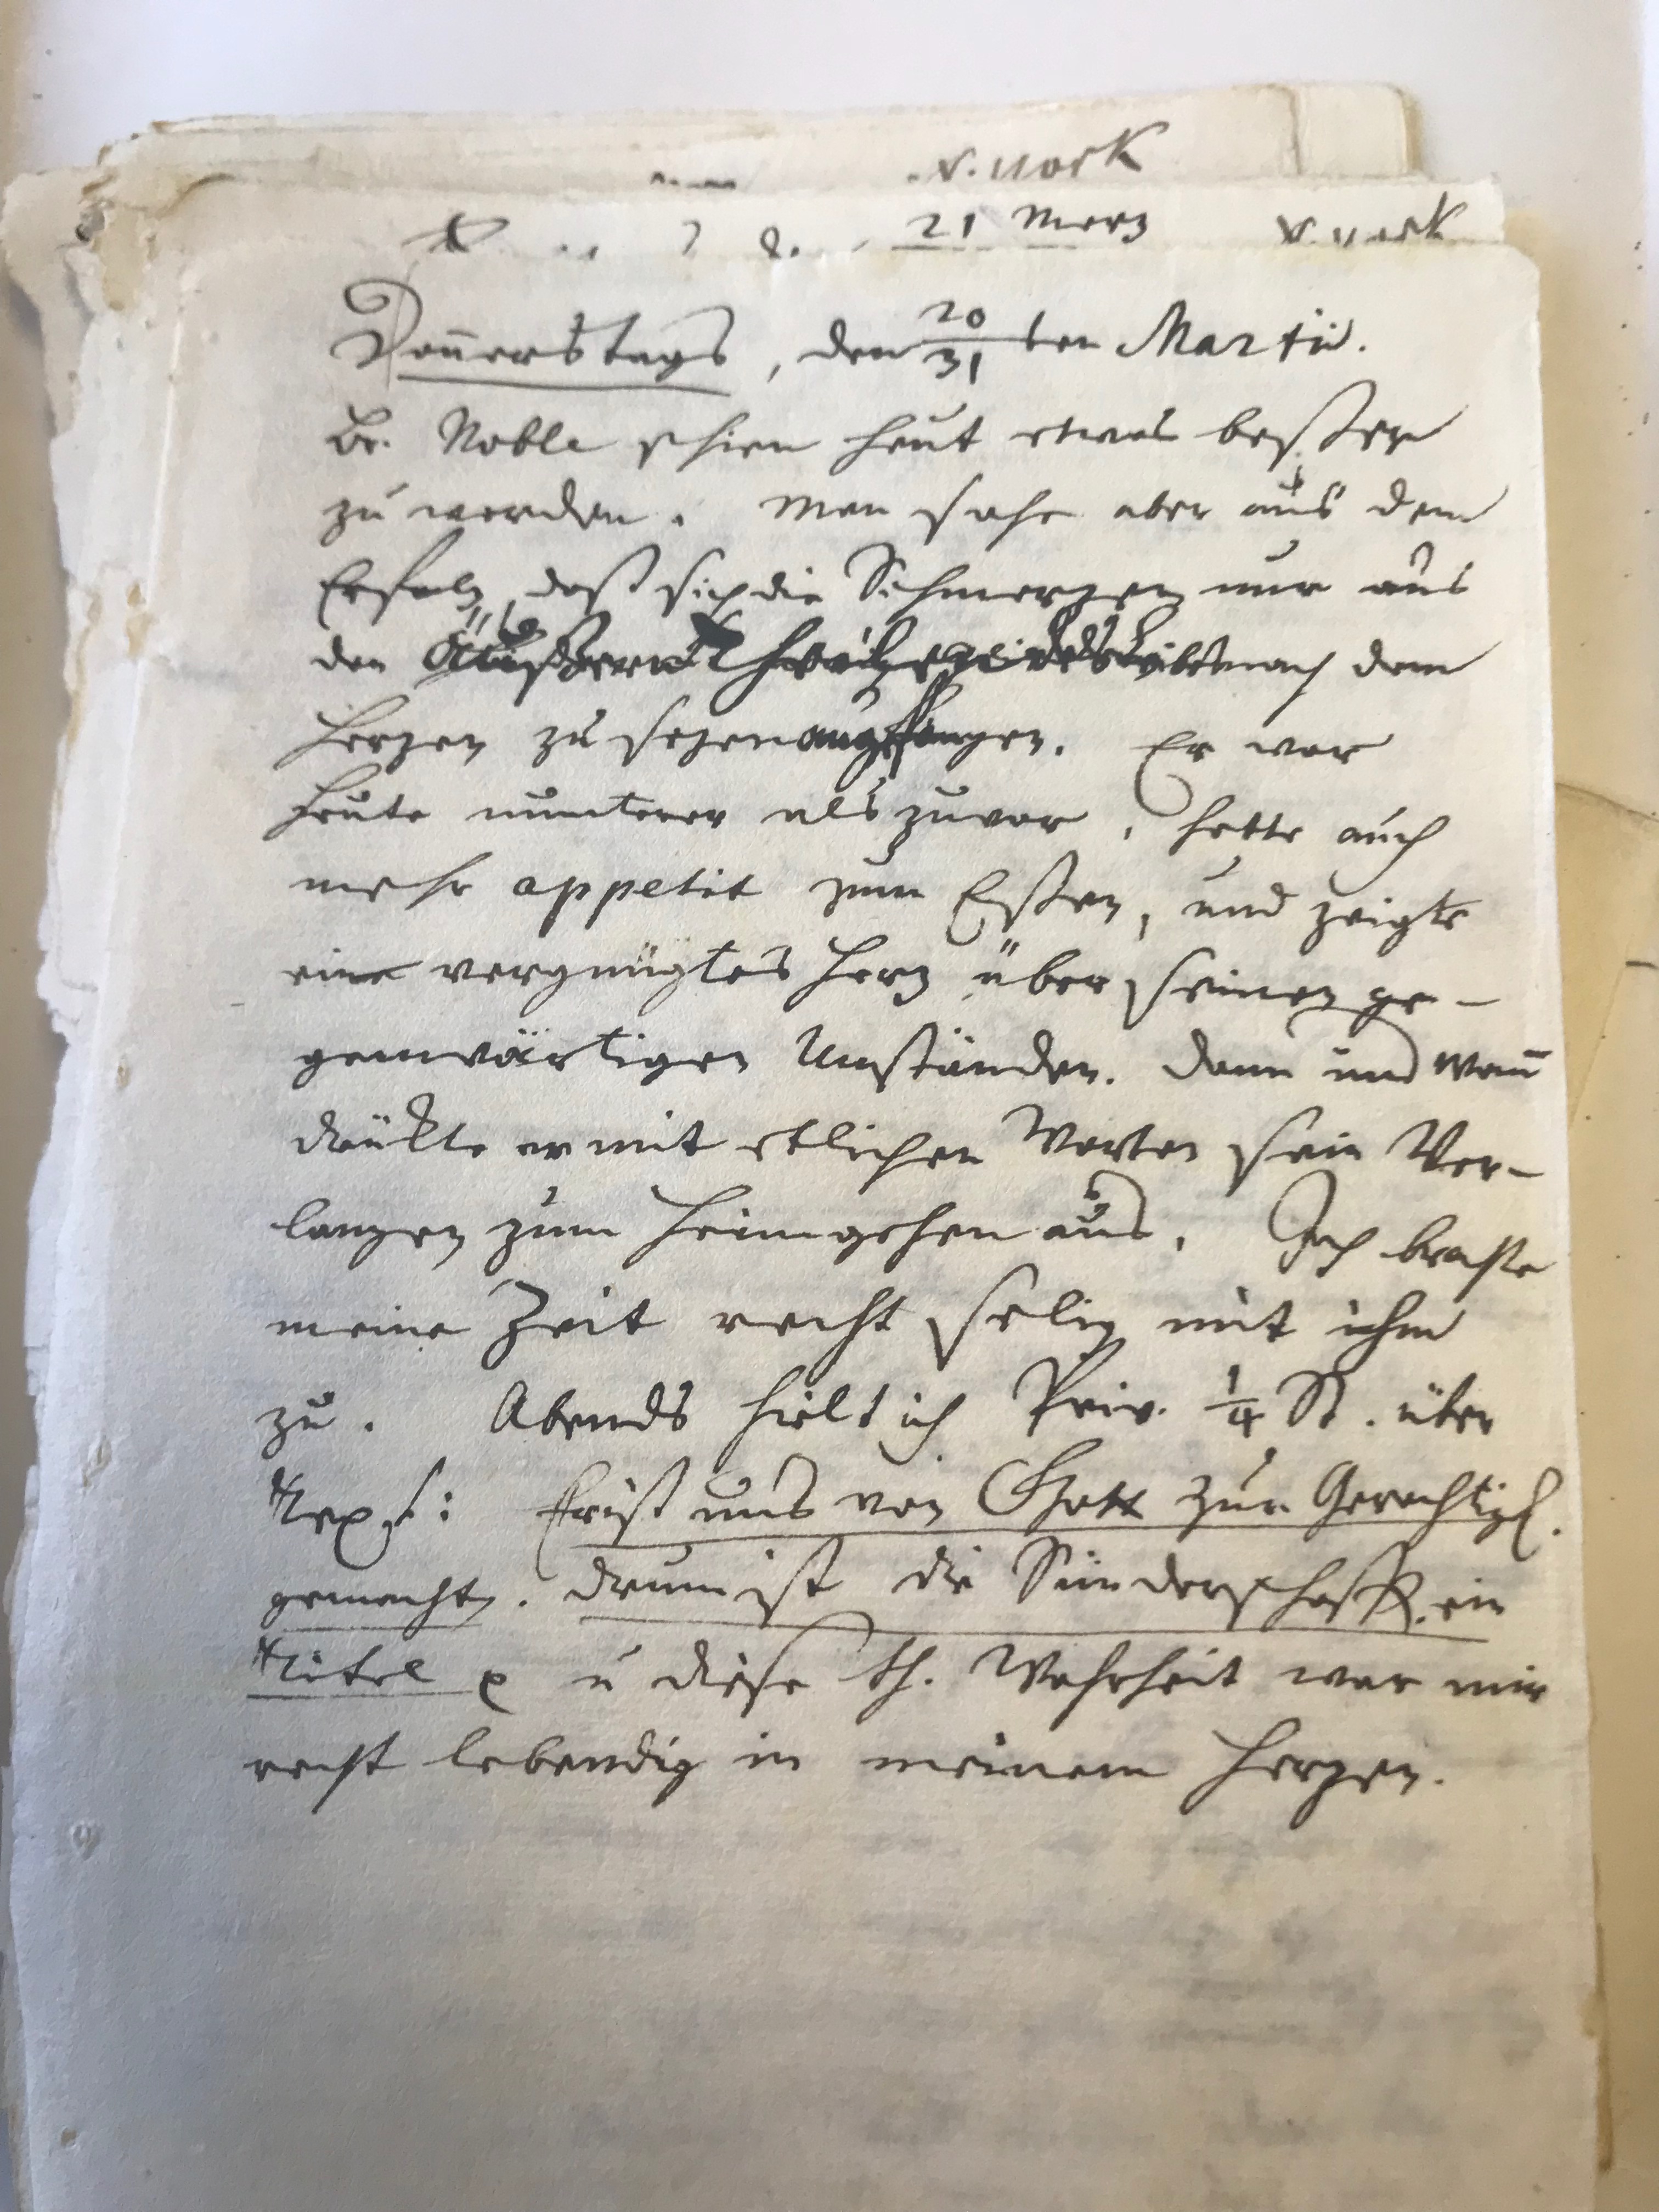 N. York
21 Merz N. York
Donnerstags, den 20/31 ten Martii.
Br. Noble schien heut etwas besser
zu werden. Man sahe aber aus dem
Erfolg, daß sich die Schmerzen nur aus
den äußern Theilen des Leibes nach dem
Herzen zu sezen angefangen. Er war
heute munterer als zuvor, hatte auch
mehr appetit zum Essen, und zeigte
ein vergnügtes Herz über seinen ge-
genwärtigen Umständen. Dann und wañ
drükte er mit etlichen Worten sein Ver-
langen zum Heimgehen aus. Ich brachte
meine Zeit recht selig mit ihm
zu. Abends hielt ich Priv. 1/4 St. über
Text: Er ist uns von Gott zur Gerechtigk.
gemacht. drum ist die Sünderschafft ein
Titel u diese th. Wahrheit war mir
recht lebendig in meinem Herzen.